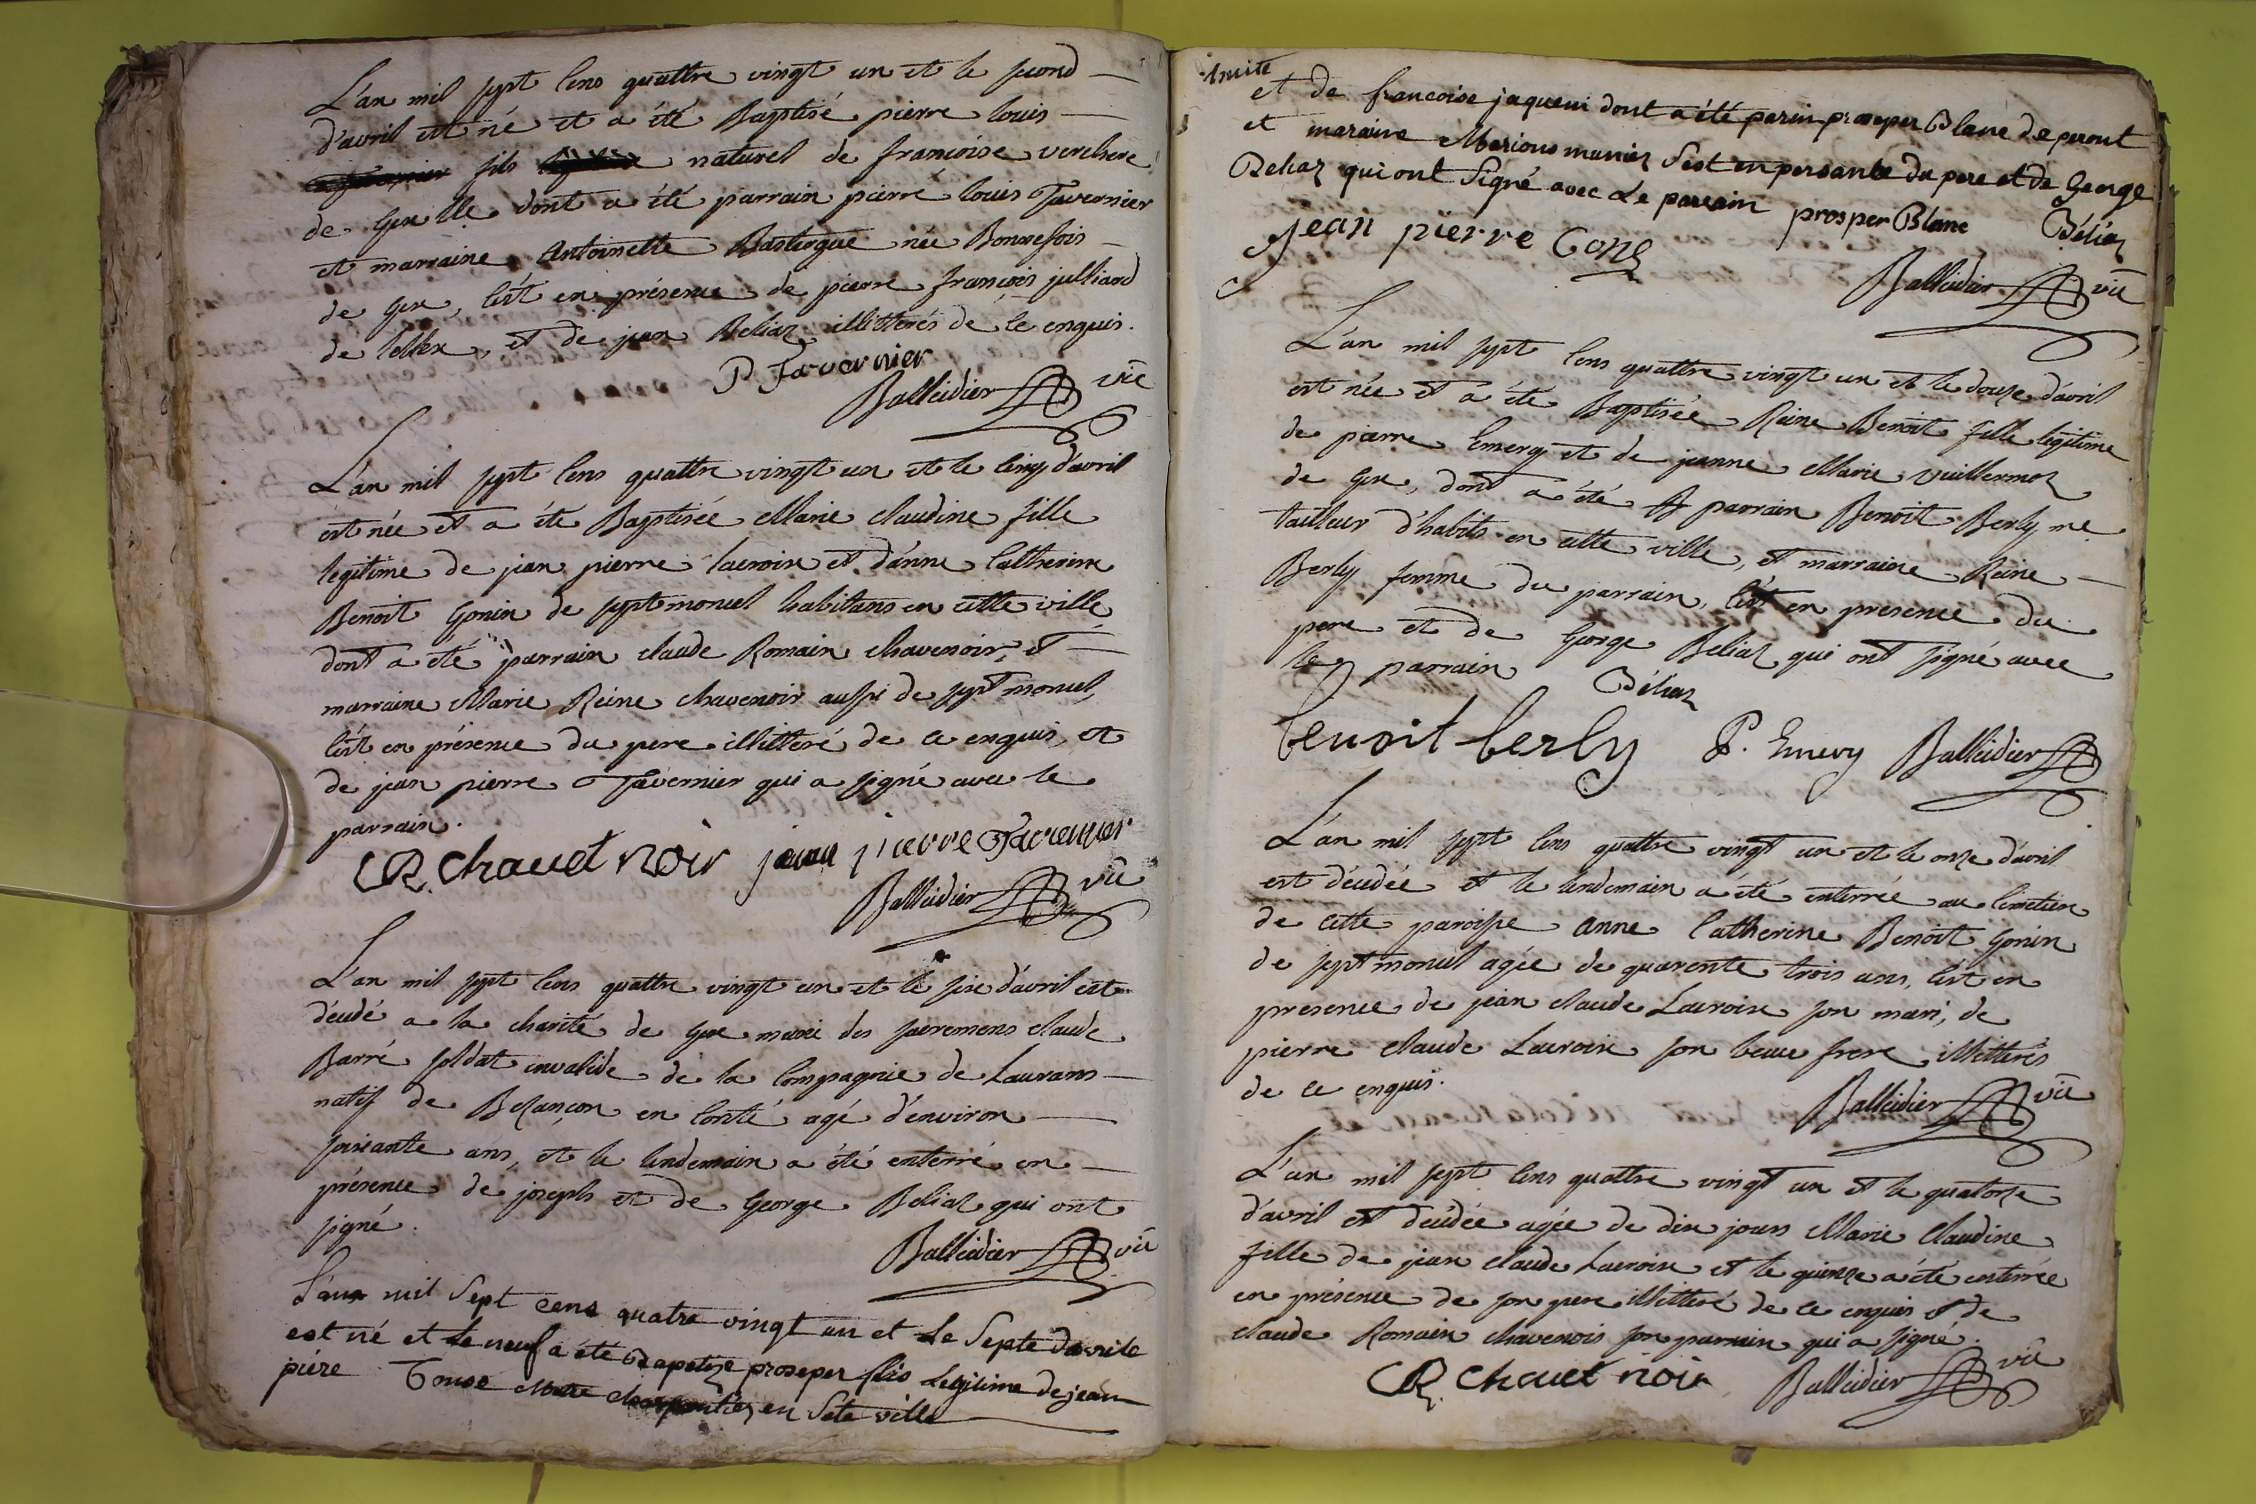 L'an mil sept cens quattre vingt un et le second
d'avril est né et a été Baptisé pierre louis
fils naturel de françoise verchere
de Gex lle dont a été parrain pierre louis Tavernier
et marraine Antoinette Bastergue née Bonnefois
de Gex, c'ést en présence de pierre françois julliard
de lellex, et de jean Beliaz illitterés de ce enquis.
P Tavernier
Balleidier vic
L'an mil sept cens quattre vingt un et le cinq d'avril
est née et a été Baptisée Marie Claudine fille
legitime de jean pierre lacroix et d'anne Catherine
Benoit Gonin de septmoncel habitans en cette ville
dont a été parrain claude Romain chavenoir, et
marraine Marie Reine chavenoir aussi de septmoncel,
c'ést en présence du pere illitteré de ce enquis, et
de jean pierre Tavernier qui a signé avec le
parrain.
CR chauet noir jean pierre Tavernier
Balleidier vic
L'an mil sept cens quattre vingt un et le six d'avril est
décedé a la charité de Gex muni des sacremens claude
Barré soldat invalide de la Compagnie de Laurans
natif de Bezançon en Conté agé d'environ
soixante ans, et le lendemain a été enterré en
présence de joseph et de George Beliaz qui ont
signé.
Balleidier vic
L'an mil Sept cens quatre vingt un et Le Septe davrile
est né et Le neuf a été Bapetize prosper fils Legitime de jean
piére Conse Mtre charpentiez en Sete ville
suite
et de francoise jaquemi dont a été parin prosper Blanc de peront
et maraine Marions muniez Sest en persante du pere et de George
Beliaz qui ont Signé avec Le parain prosper Blanc Béliaz
jean pierre Cons
Balleidier vic
L'an mil sept cens quattre vingt un et le douze d'avril
est née et a été Baptisée Reine Benoit fille legitime
de pierre Emery et de jeanne Marie Vuillermoz
de Gex, dont a été parrain Benoit Berly me
tailleur d'habits en cette ville, et marraine Reine
Berly femme du parrain, c'ést en presence du
pere et de George Beliaz qui ont signé avec
le parrain Béliaz
benoit berly P. Emery Balleidier
L'an mil sept cens quattre vingt un et le onze d'avril
est décedée et le lendemain a été enterrée au Cimetiere
de cette paroisse anne Catherine Benoit Gonin
de septmoncel agée de quarente trois ans, c'ést en
presence de jean claude Lacroix son mari, de
pierre claude Lacroix son beau frere illitterés
de ce enquis.
Balleidier vic
L'an mil sept cens quattre vingt un et le quatorze
d'avril est décédée agée de dix jours Marie Claudine
fille de jean claude Lacroix et le quinze a été enterrée
en présence de son pere illitteré de ce enquis et de
claude Romain chavenois son parrain qui a signé.
CR chauet noir Balleidier vic